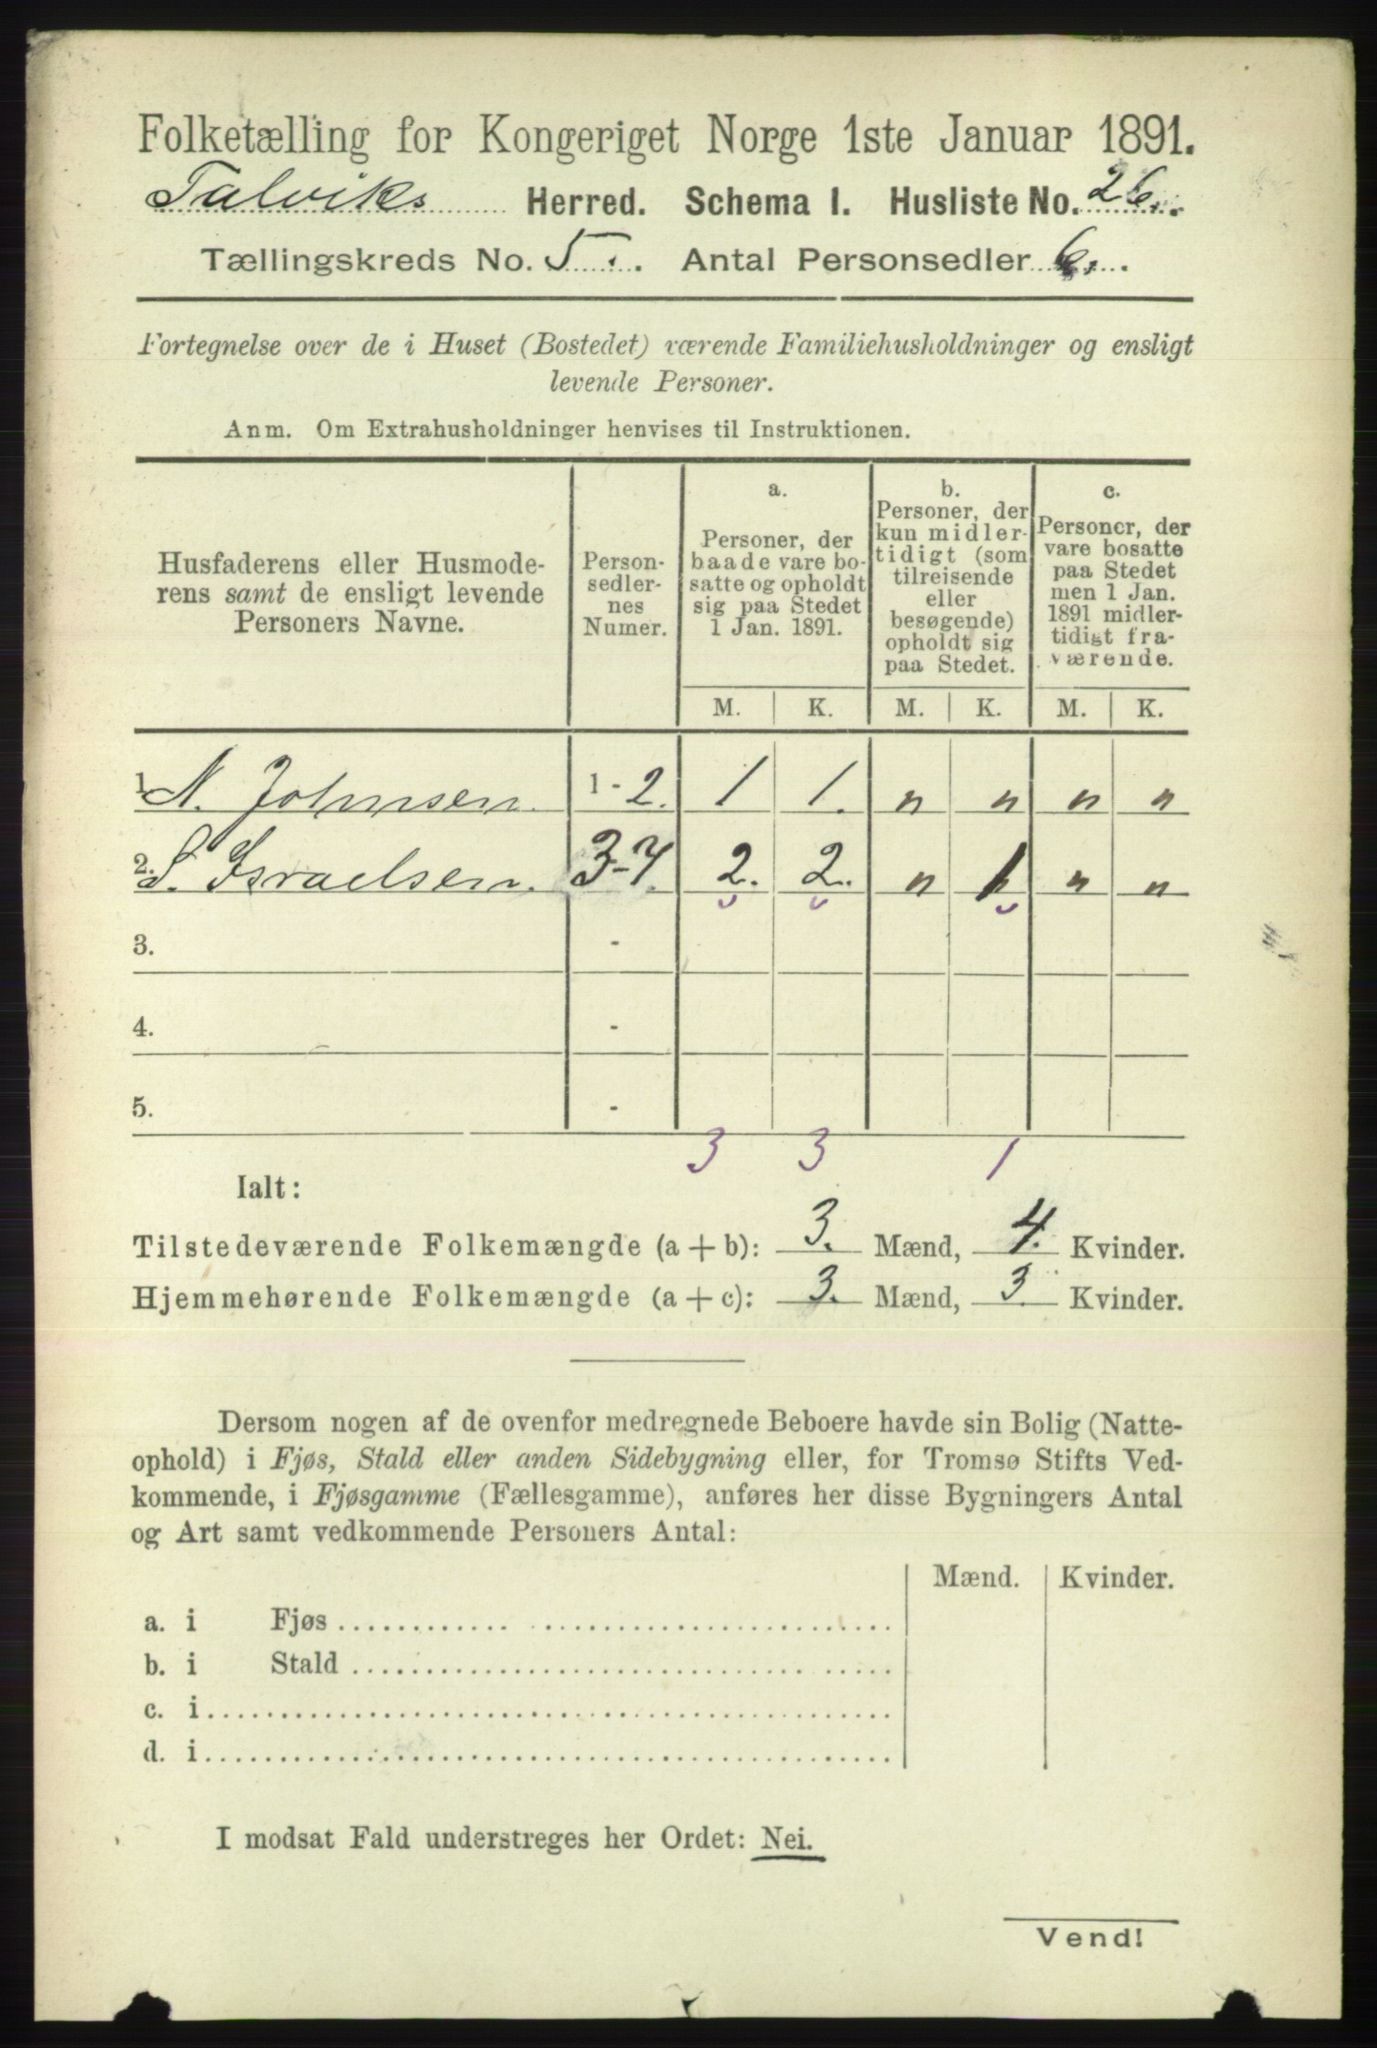 Folketælling for Kongeriget Norge 1ste Januar 1891.
Talviks Herred. Schema I. Husliste No. 26.
Tællingskreds No. 5. Antal Personsedler 6.
Fortegnelse over de i Huset (Bostedet) værende Familiehusholdninger og ensligt
levende Personer.
Anm. Om Extrahusholdninger henvises til Instruktionen.
Husfaderens eller Husmode-
rens samt de ensligt levende
Personers Navne.
Person-
sedler-
nes
Numer.
a.
Personer, der
baade vare bo-
satte og opholdt
sig paa Stedet
1 Jan. 1891.
b.
Personer, der
kun midler-
tidigt (som
tilreisende
eller
besøgende)
opholdt sig
paa Stedet.
c.
Personer, der
vare bosatte
paa Stedet
men 1 Jan.
1891 midler-
tidigt fra-
værende.
M. K. M. K. M. K.
1. N. Johnsen. 1-2. 1 1. " " " "
2. S. Israelsen. 3-7. 2. 2. " 1 " "
3. -
4. -
5. -
3 3 1
Ialt:
Tilstedeværende Folkemængde (a + b): 3. Mænd, 4. Kvinder.
Hjemmehørende Folkemængde (a + c): 3. Mænd, 3. Kvinder.
Dersom nogen af de ovenfor medregnede Beboere havde sin Bolig (Natte-
ophold) i Fjøs, Stald eller anden Sidebygning eller, for Tromsø Stifts Ved-
kommende, i Fjøsgamme (Fællesgamme), anføres her disse Bygningers Antal
og Art samt vedkommende Personers Antal:
Mænd. Kvinder.
a. i Fjøs
b. i Stald
c. i
d. i
I modsat Fald understreges her Ordet: Nei.
Vend!